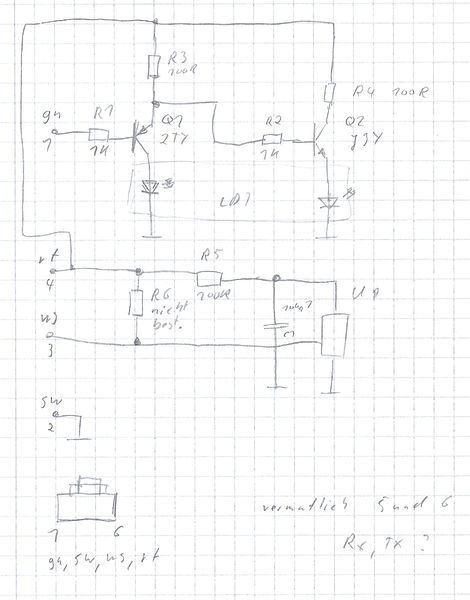 R3
100R
gn
1
R1
1K
Q1
2TY
R2
1K
R4 100R
Q2
J3Y
LD1
rt
4
R5
100R
R6
nicht
best.
100n?
C1
U1
ws
3
sw
2
1 6
gn, sw, ws, rt
vermutlich 5 und 6
Rx, Tx ?